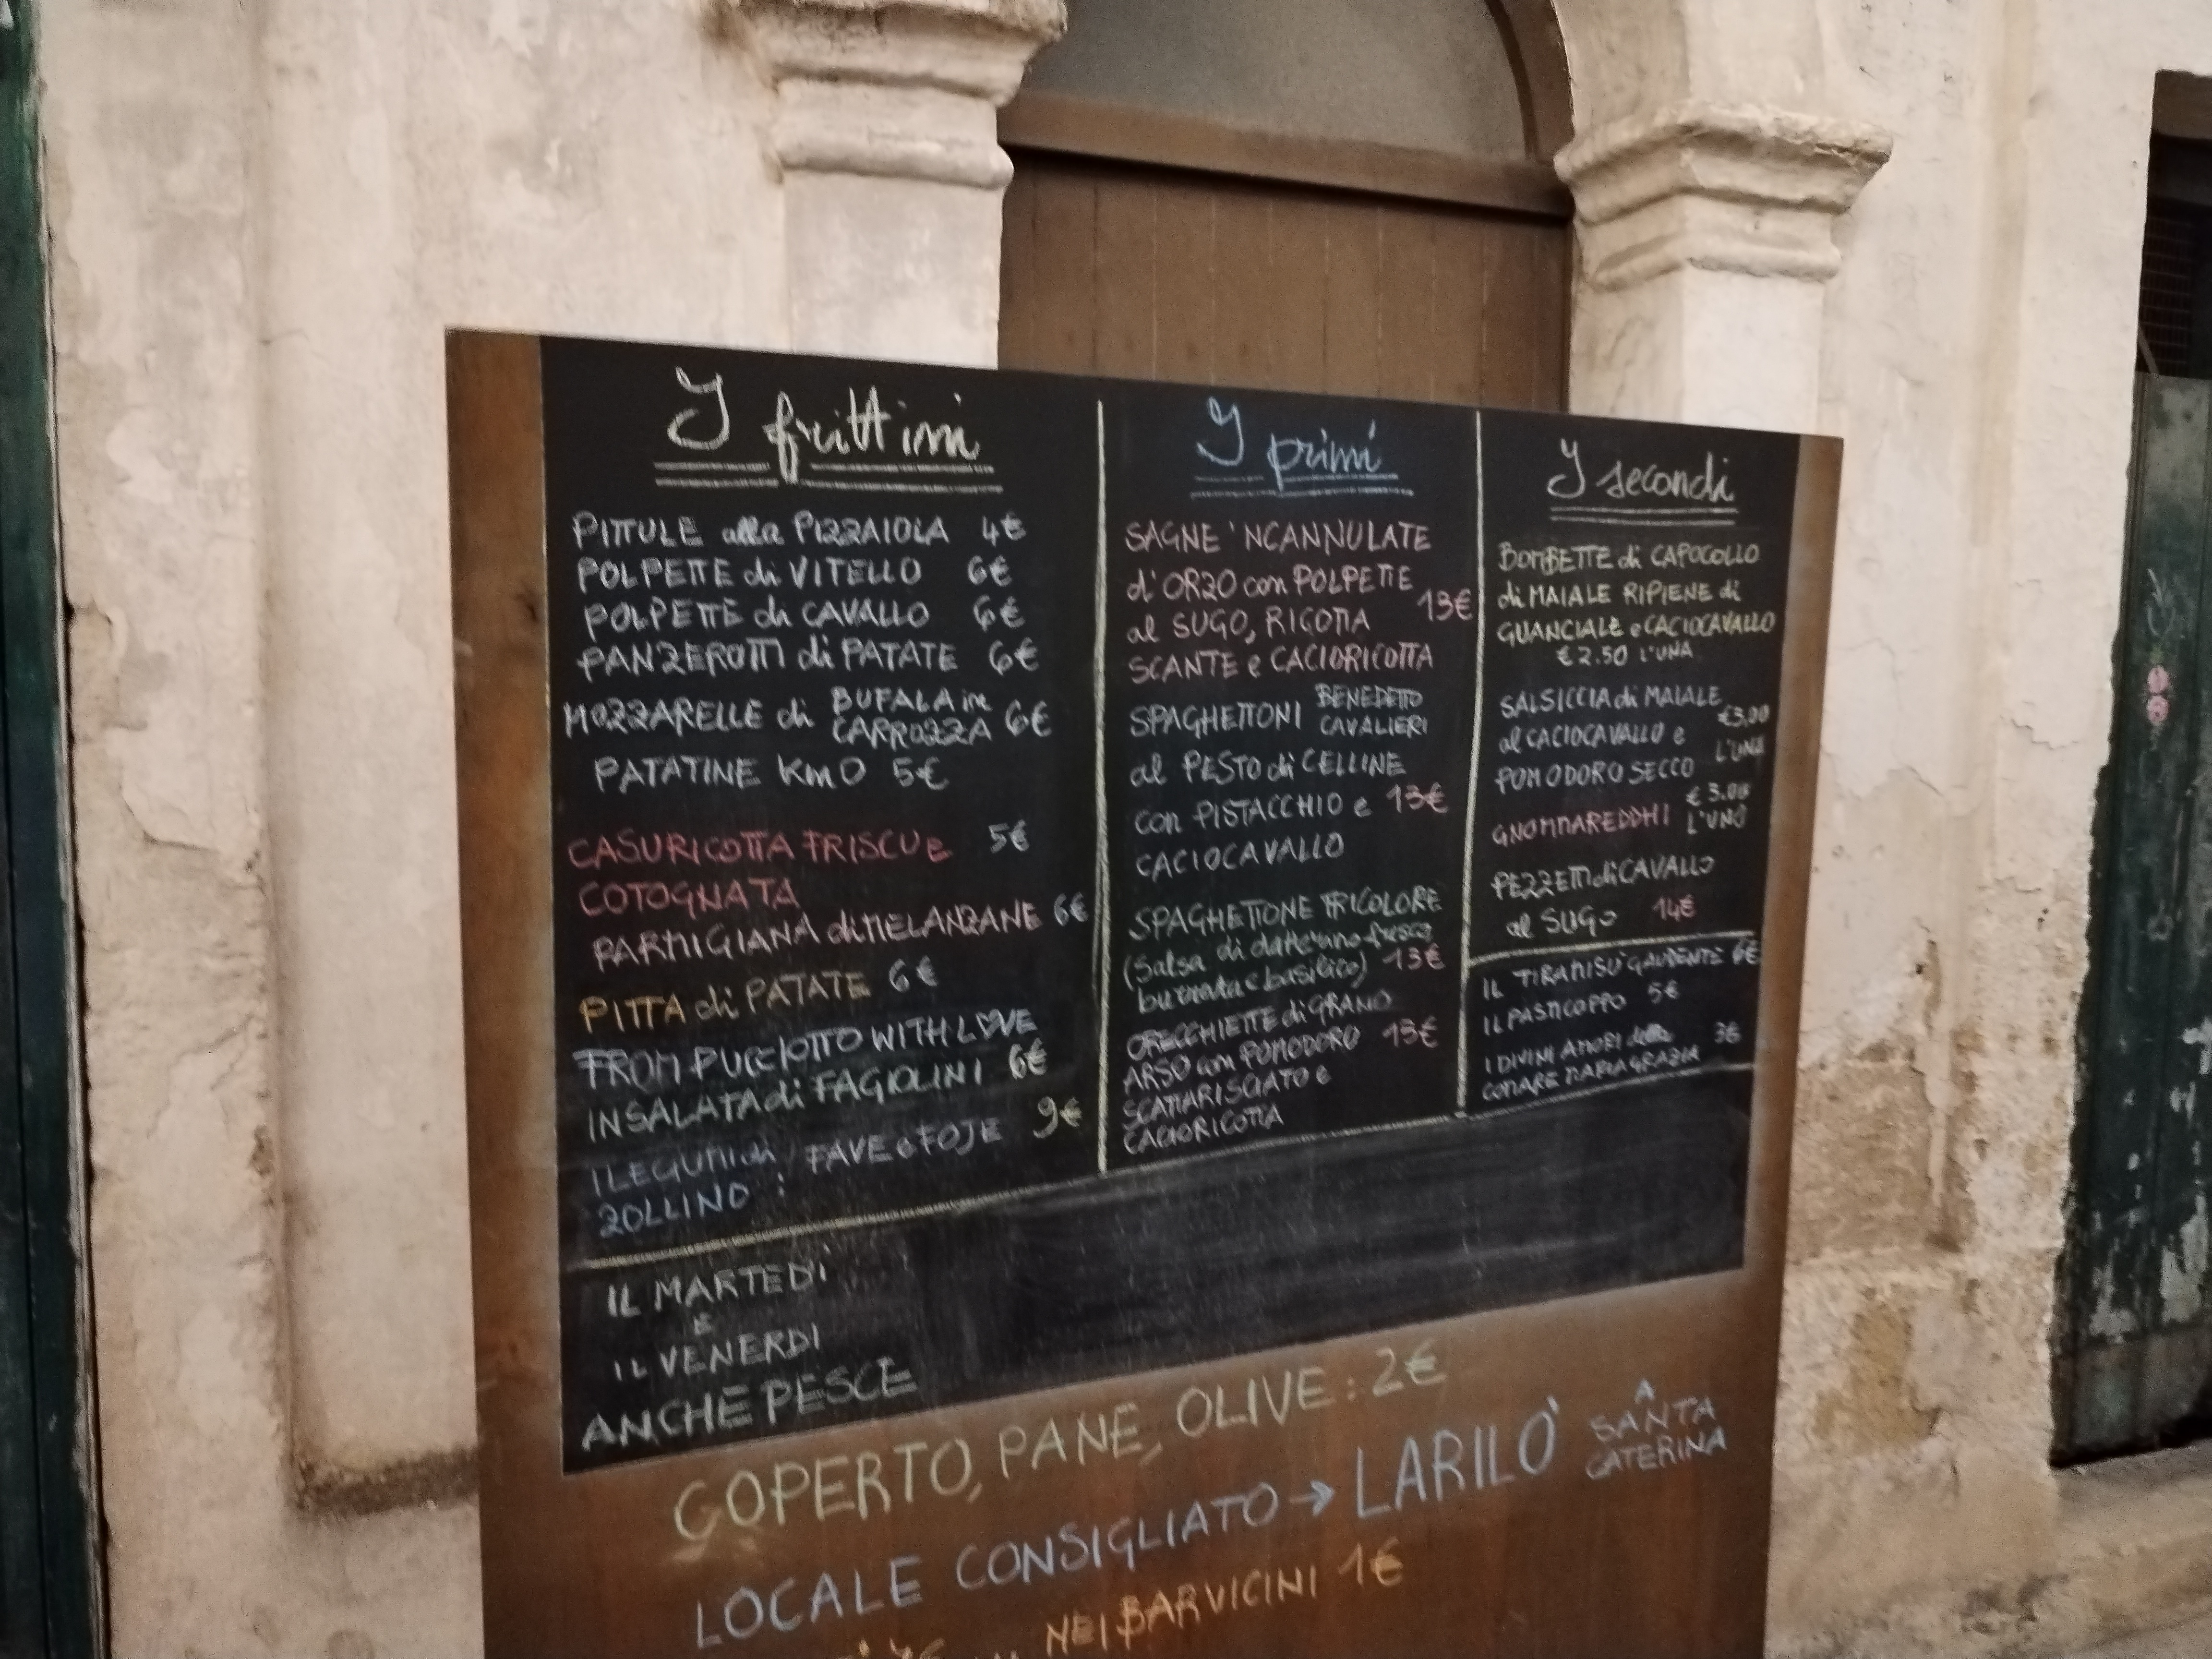 I frittini
PITTULE alla PIZZAIOLA 4€
POLPETTE di VITELLO 6€
POLPETTE di CAVALLO 6€
PANZEROTTI di PATATE 6€
MOZZARELLE di BUFALA in
CARROZZA 6€
PATATINE Km0 5€
CASURICOTTA FRISCU e 5€
COTOGNATA
PARMIGIANA di MELANZANE 6€
PITTA di PATATE 6€
FROM PUCCIOTTO WITH LOVE
INSALATA di FAGIOLINI 6€
I LEGUMI di FAVE e FOJE 9€
ZOLLINO :
IL MARTEDI'
E
IL VENERDI
ANCHE PESCE
I primi
SAGNE 'NCANNULATE
d'ORZO con POLPETTE
al SUGO, RICOTTA 13€
SCANTE e CACIORICOTTA
SPAGHETTONI BENEDETTO
CAVALIERI
al PESTO di CELLINE
con PISTACCHIO e 13€
CACIOCAVALLO
SPAGHETTONE TRICOLORE
(Salsa di datterino fresco
burrata e basilico) 13€
ORECCHIETTE di GRANO
ARSO con POMODORO 13€
SCATTARISCIATO e
CACIORICOTTA
I secondi
BOMBETTE di CAPOCOLLO
di MAIALE RIPIENE di
GUANCIALE e CACIOCAVALLO
€2.50 L'UNA
SALSICCIA di MAIALE
al CACIOCAVALLO e €3,00
POMODORO SECCO L'UNA
GNOMMAREDDHI € 3.00
L'UNO
PEZZETTI di CAVALLO
al SUGO 14€
IL TIRAMISU' GAUDENTE 6€
IL PASTICOPPO 5€
I DIVINI AMORI della 3€
COMARE MARIAGRAZIA
COPERTO, PANE, OLIVE: 2€
LOCALE CONSIGLIATO → LARILO' A
SANTA
CATERINA
NEI BAR VICINI 1€